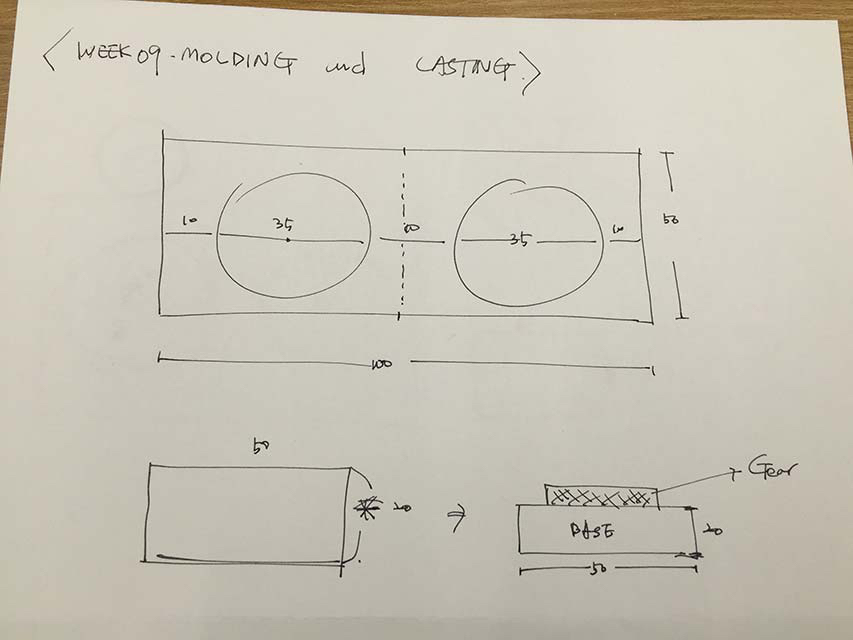 <WEEK09-MOLDING and CASTING>
10 35 10 35 10
50
100
50
20
Gear
BASE
20
50